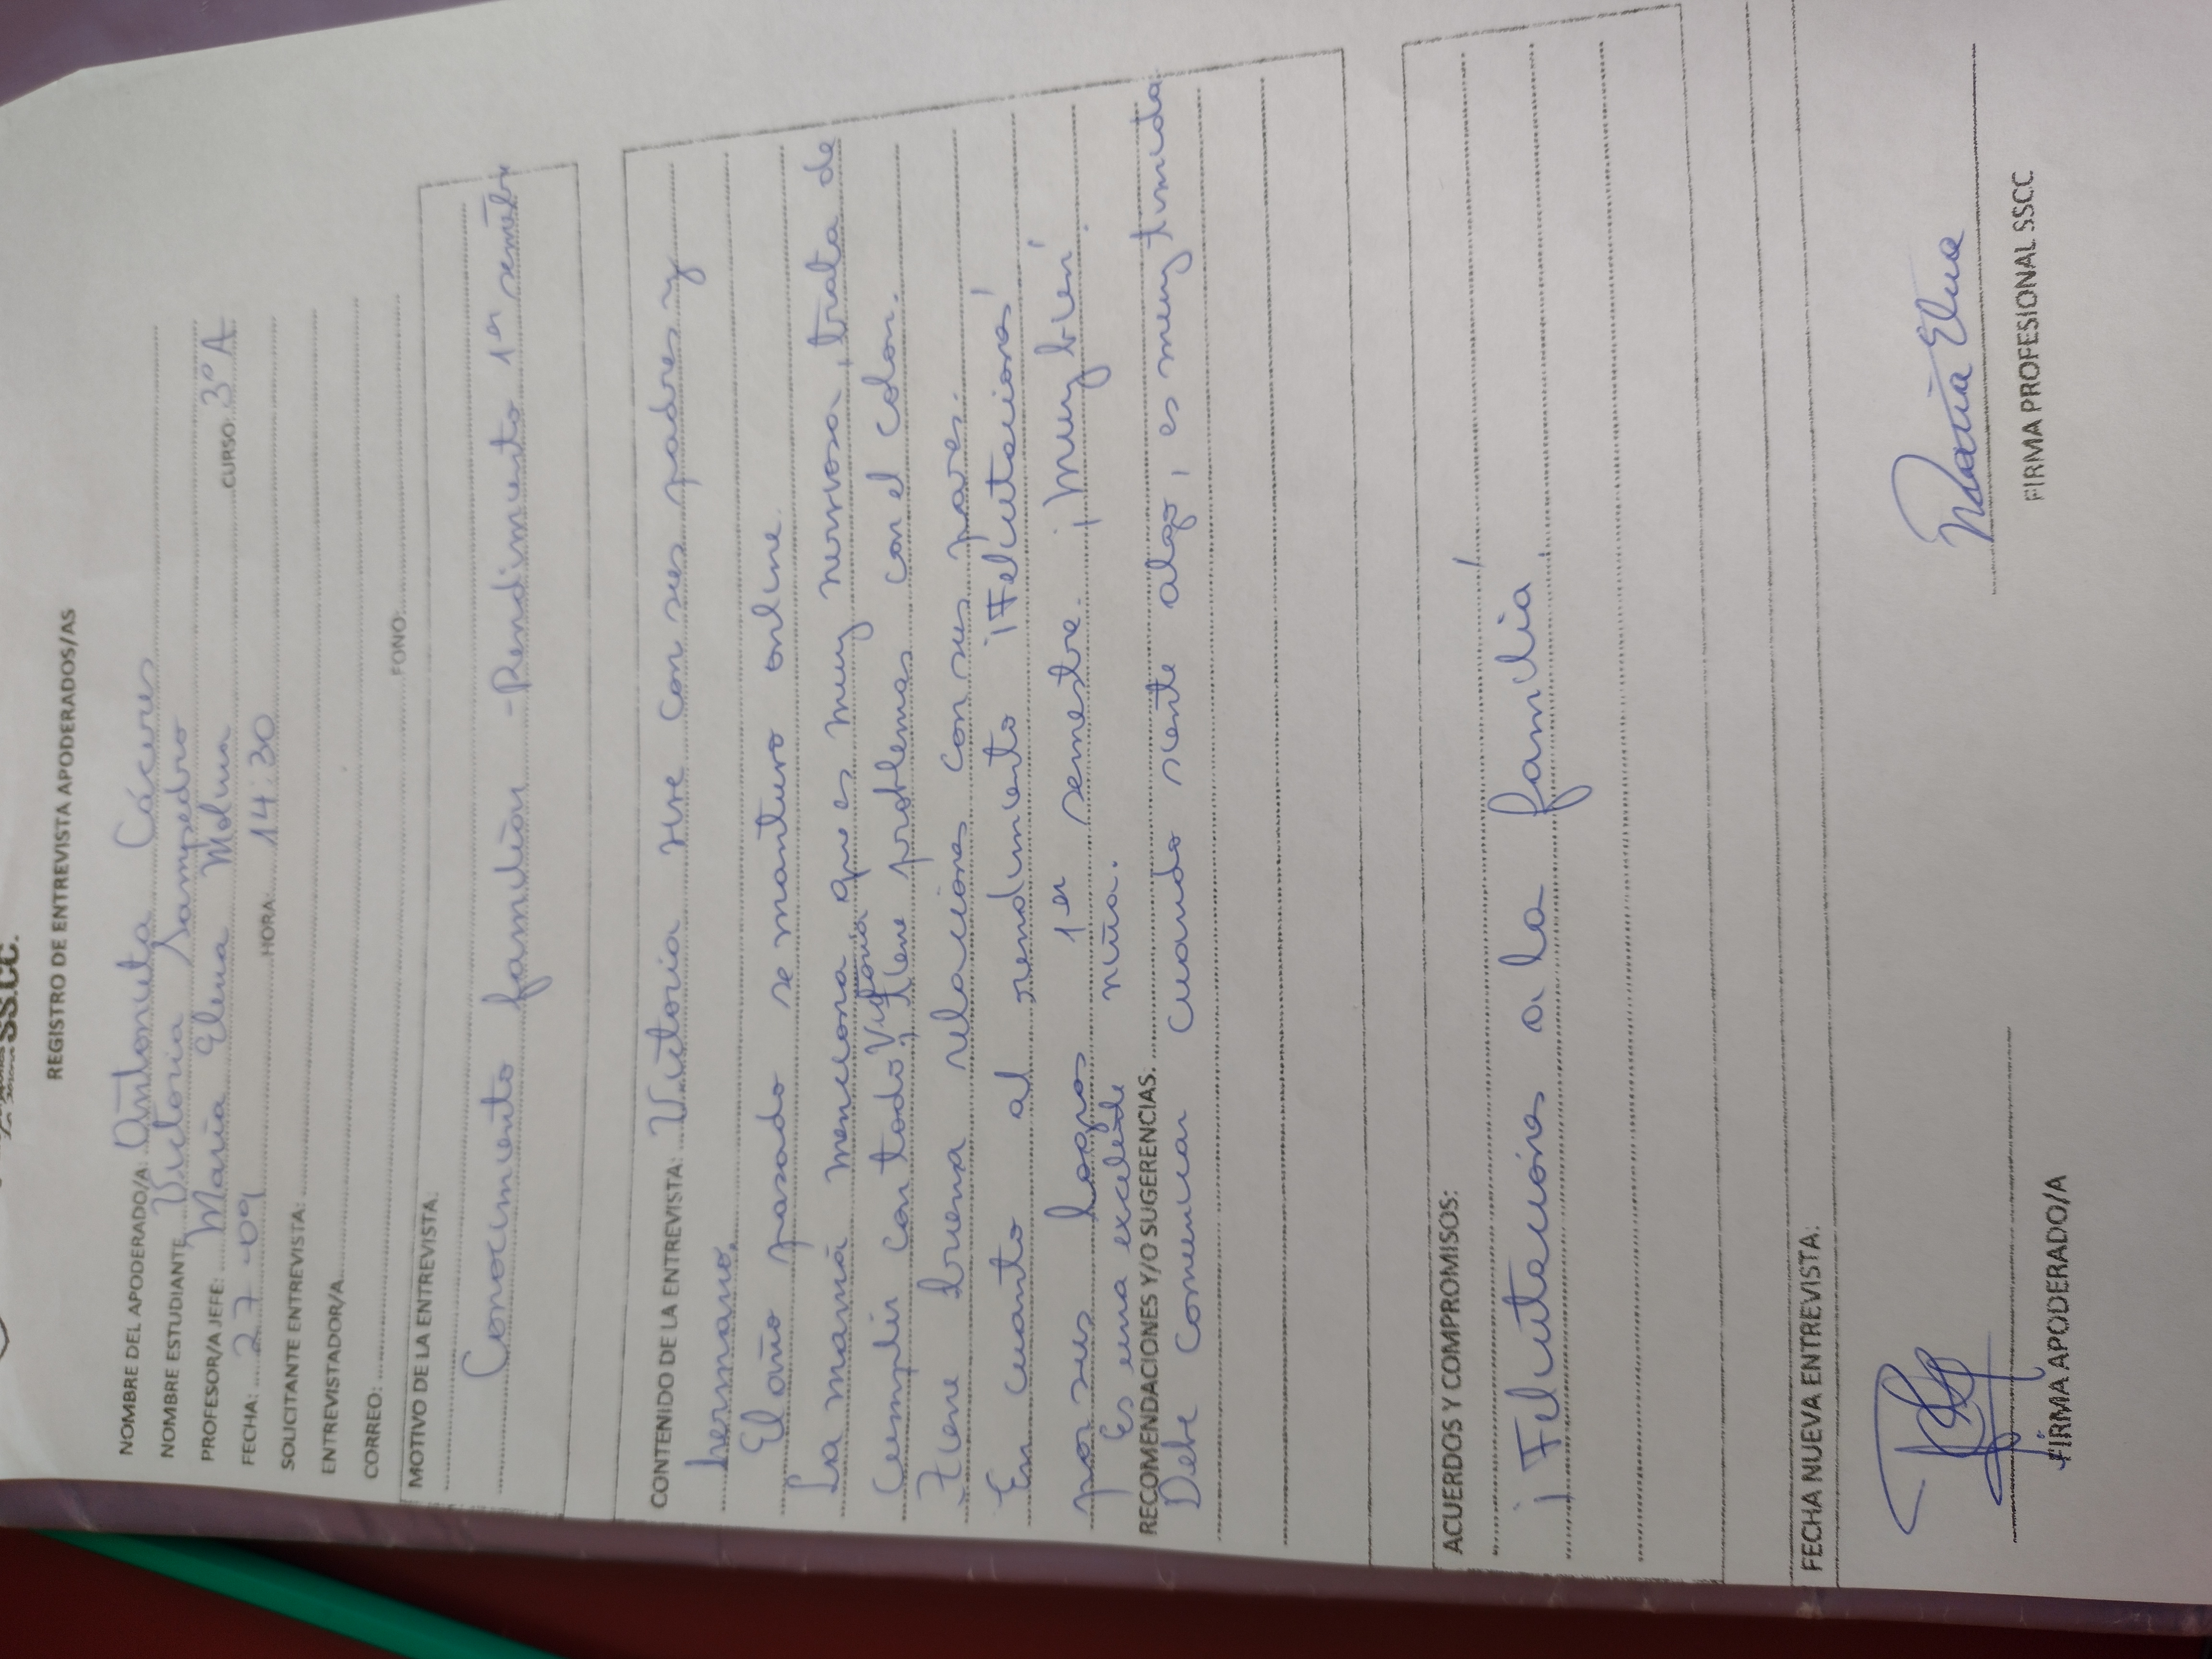 SS.CC.
REGISTRO DE ENTREVISTA APODERADOS/AS
NOMBRE DEL APODERADO/A: Antonieta Cáceres
NOMBRE ESTUDIANTE Victoria Sampedro
PROFESOR/A JEFE: María Elena Molina CURSO: 3º A
FECHA: 27-09 HORA: 14:30
SOLICITANTE ENTREVISTA:
ENTREVISTADOR/A
CORREO: FONO:
MOTIVO DE LA ENTREVISTA
Conocimiento familiar - Rendimiento 1er
CONTENIDO DE LA ENTREVISTA: Victoria vive con sus padres y
hermano.
El año pasado se mantuvo online.
La mamá menciona que es muy nerviosa, trata de
cumplir con todo y tiene problemas con el colon.
Tiene buena relaciones con sus pares.
En cuanto al rendimiento ¡Felicitaciones!
por sus logros 1er semestre. ¡Muy bien!
Es una excelente niña.
RECOMENDACIONES Y/O SUGERENCIAS.
Debe comunicar cuando siente algo, es muy timida
ACUERDOS Y COMPROMISOS:
¡Felicitaciones a la familia!
FECHA NUEVA ENTREVISTA:
María Elena
FIRMA APODERADO/A FIRMA PROFESIONAL SSCC